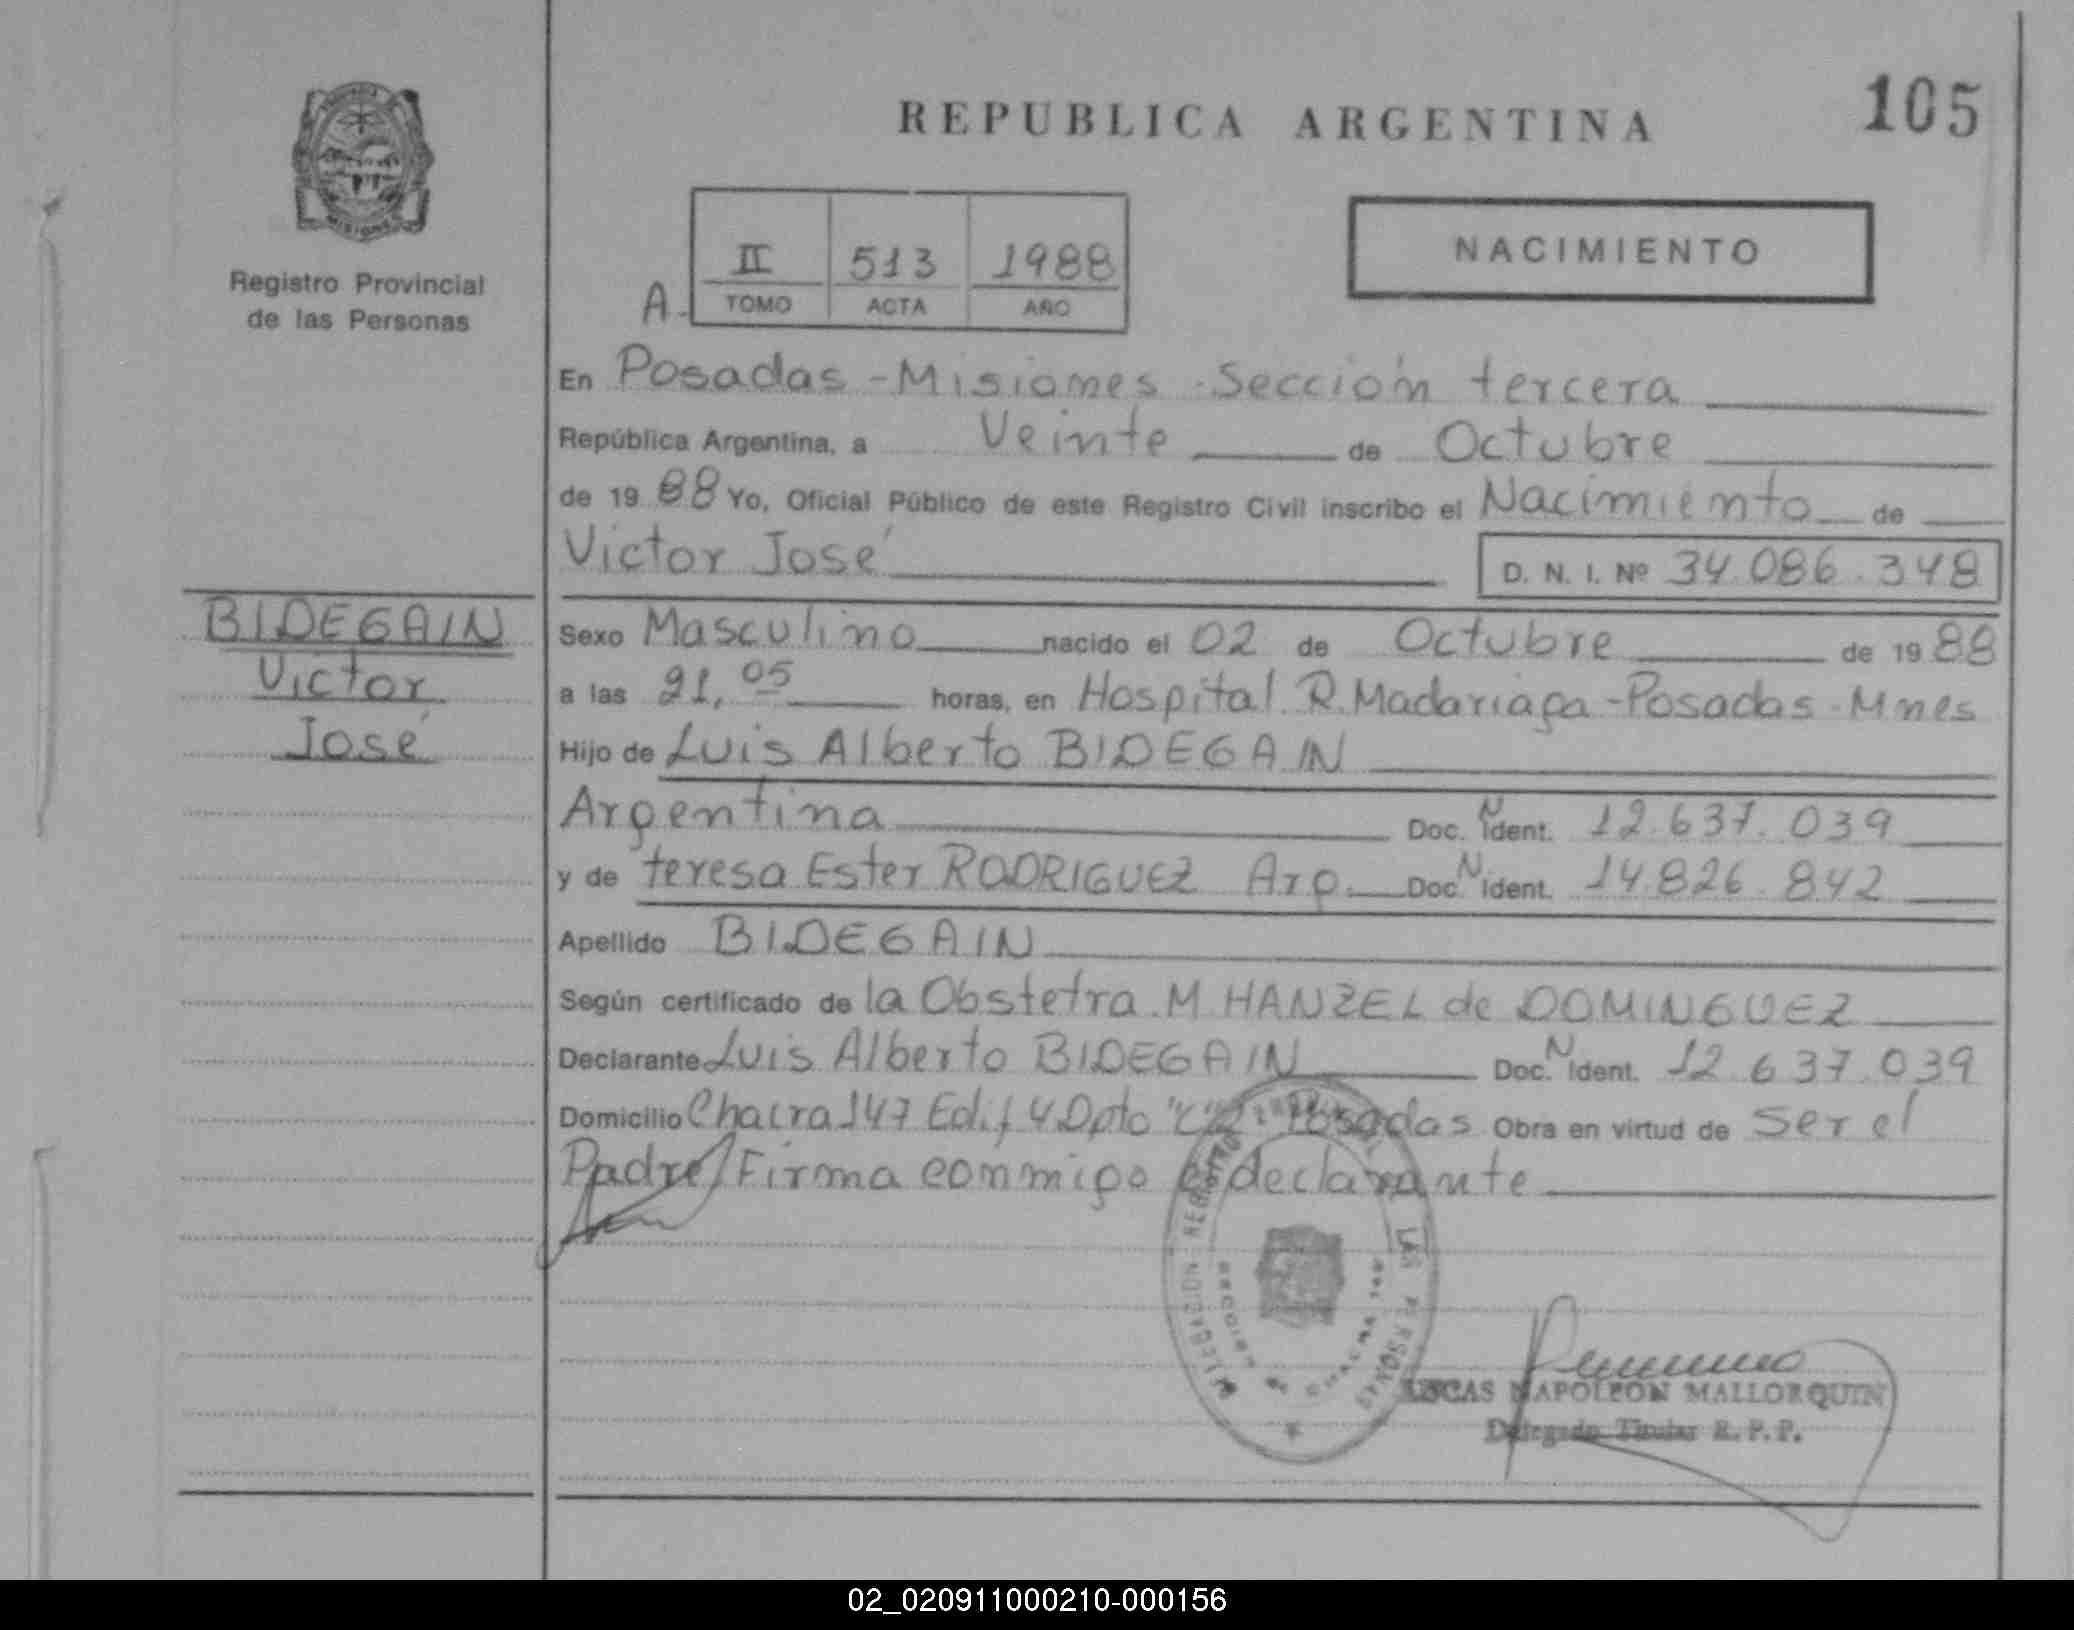 REPUBLICA ARGENTINA
105
Registro Provincial
de las Personas
NACIMIENTO
A.
II 513 1988
TOMO ACTA AÑO
En Posadas - Misiones - Sección tercera
República Argentina, a Veinte de Octubre
de 1988 Yo, Oficial Público de este Registro Civil inscribo el Nacimiento de
Victor José D. N. I. Nº 34.086.348
BIDEGAIN
Victor
José
Sexo Masculino nacido el 02 de Octubre de 1988
a las 21,05 horas, en Hospital R. Madariaga - Posadas - Mnes
Hijo de Luis Alberto BIDEGAIN
Argentina Doc. N Ident. 12.637.039
y de teresa Ester RODRIGUEZ Arg. Doc. N Ident. 14.826.842
Apellido BIDEGAIN
Según certificado de la Obstetra M. HANZEL de DOMINGUEZ
Declarante Luis Alberto BIDEGAIN Doc. N Ident. 12.637.039
Domicilio Chacra 147 Edif 4 Dpto Posadas Obra en virtud de Ser el
Padre/Firma conmigo el declarante
LAS PERSONAS
CHACRA
LUCAS NAPOLEON MALLORQUIN
Delegado Titular R. P. P.
02_020911000210-000156